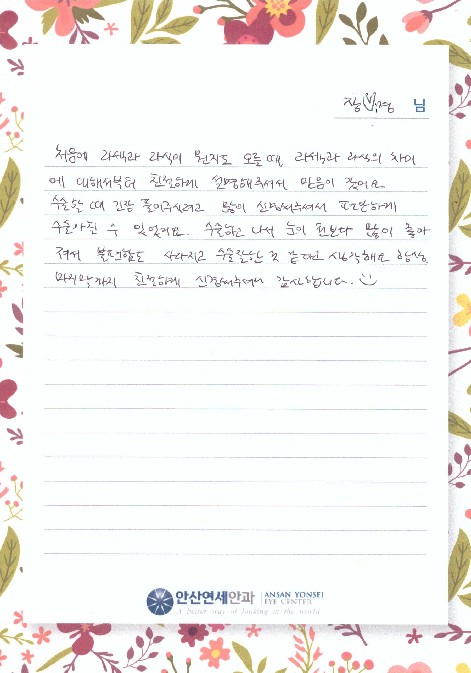 장 경 님
처음에 라섹과 라식이 뭔지도 모를 때, 라섹과 라식의 차이
에 대해서부터 친절하게 설명해주셔서 마음이 좋어요
수술할 때 긴장 풀어주시려고 많이 신경써주셔서 편안하게
수술가진 수 있었어요. 수술하고 나서 눈이 전보다 많이 좋아
져서 불편함도 사라지고 수술잘한 것 같다고 생각해요 항상
마지막까지 친절하게 신경써주셔서 감사합니다. ☺
안산연세안과 ANSAN YONSEI EYE CENTER
A better way of looking at the world